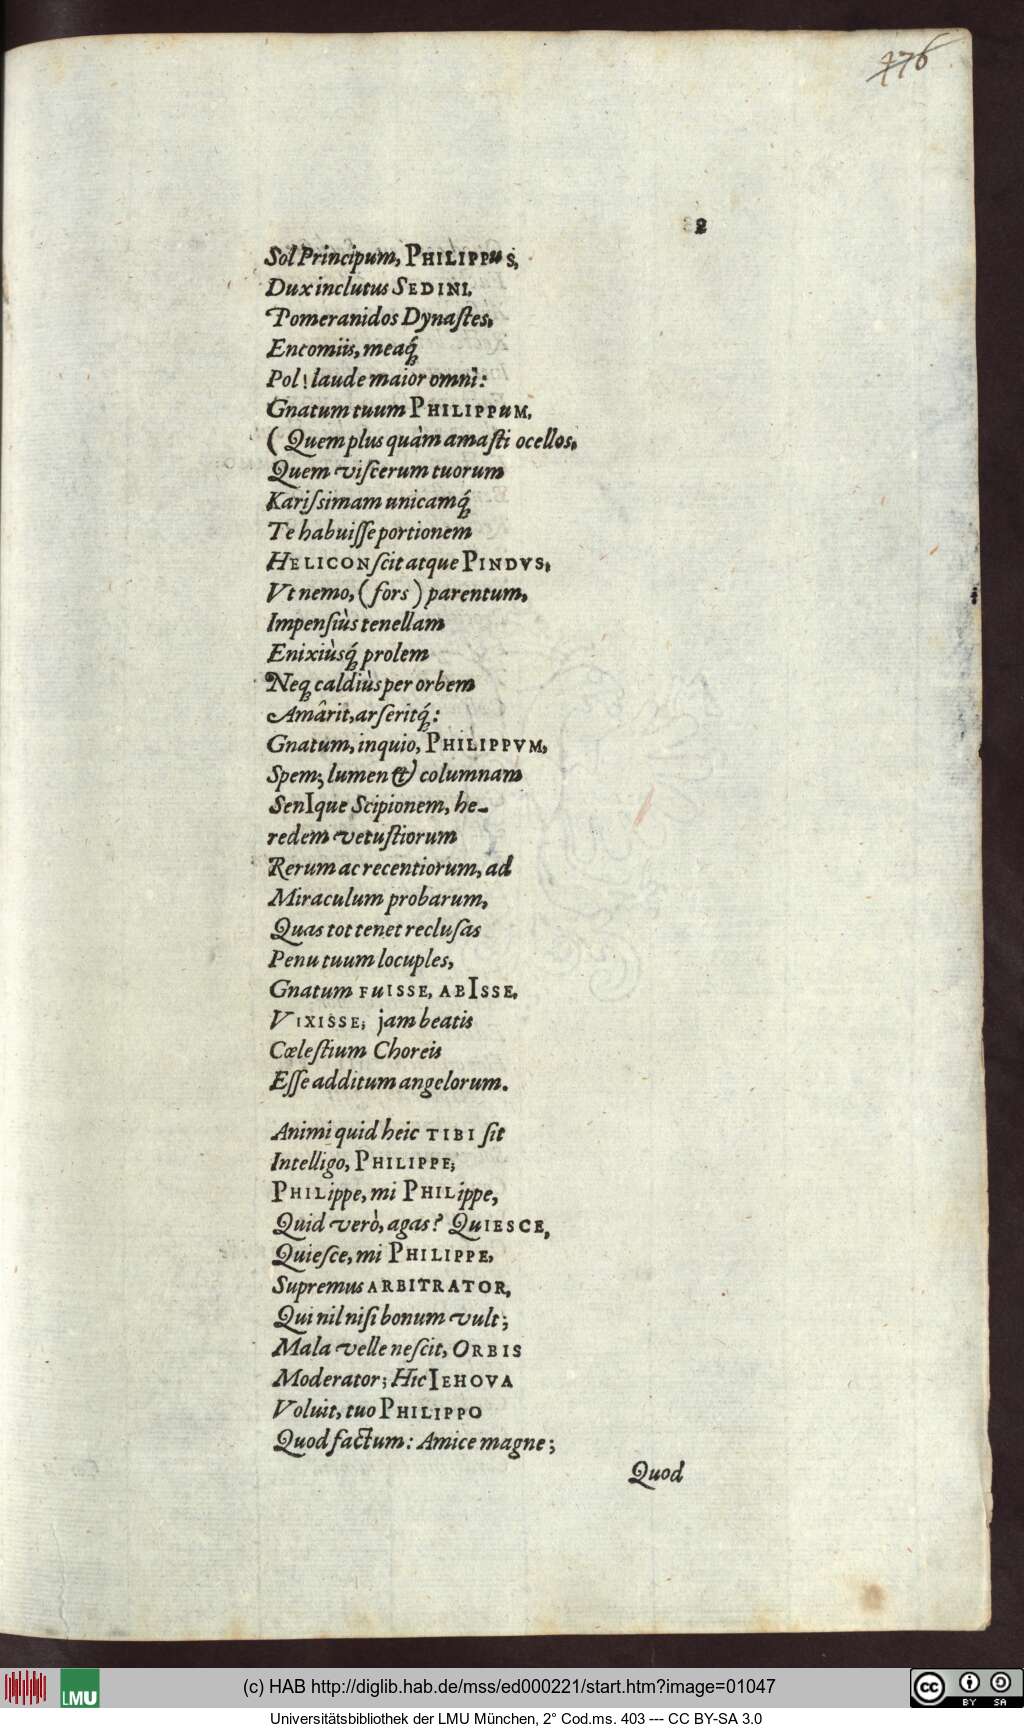 176
2
Sol Principum, PHILIPPuS,
Dux inclutus SEDINI,
Pomeranidos Dynaſtes,
Encomiis, meaq́;
Pol! laude maior omni:
Gnatum tuum PHILIPPuM,
( Quem plus quàm amaſti ocellos,
Quem viſcerum tuorum
Kariſsimam unicamq́;
Te habuiſſe portionem
HELICON ſcit atque PINDVS,
Vt nemo, (fors) parentum,
Impenſiùs tenellam
Enixiùsq́; prolem
Neq; caldiùs per orbem
Amârit, arſeritq́;:
Gnatum, inquio, PHILIPPVM,
Spem; lumen & columnam
SenIque Scipionem, he-
redem vetuſtiorum
Rerum ac recentiorum, ad
Miraculum probarum,
Quas tot tenet recluſas
Penu tuum locuples,
Gnatum FuISSE, ABISSE,
VIXISSE; jam beatis
Cœleſtium Choreis
Eſſe additum angelorum.
Animi quid heic TIBI ſit
Intelligo, PHILIPPE;
PHILippe, mi PHILippe,
Quid verò, agas? QuIESCE,
Quieſce, mi PHILIPPE,
Supremus ARBITRATOR,
Qui nil niſi bonum vult;
Mala velle neſcit, ORBIS
Moderator; Hic IEHOVA
Voluit, tuo PHILIPPO
Quod factum: Amice magne;
Quod
LMU
(c) HAB http://diglib.hab.de/mss/ed000221/start.htm?image=01047
cc BY SA
Universitätsbibliothek der LMU München, 2° Cod.ms. 403 --- CC BY-SA 3.0